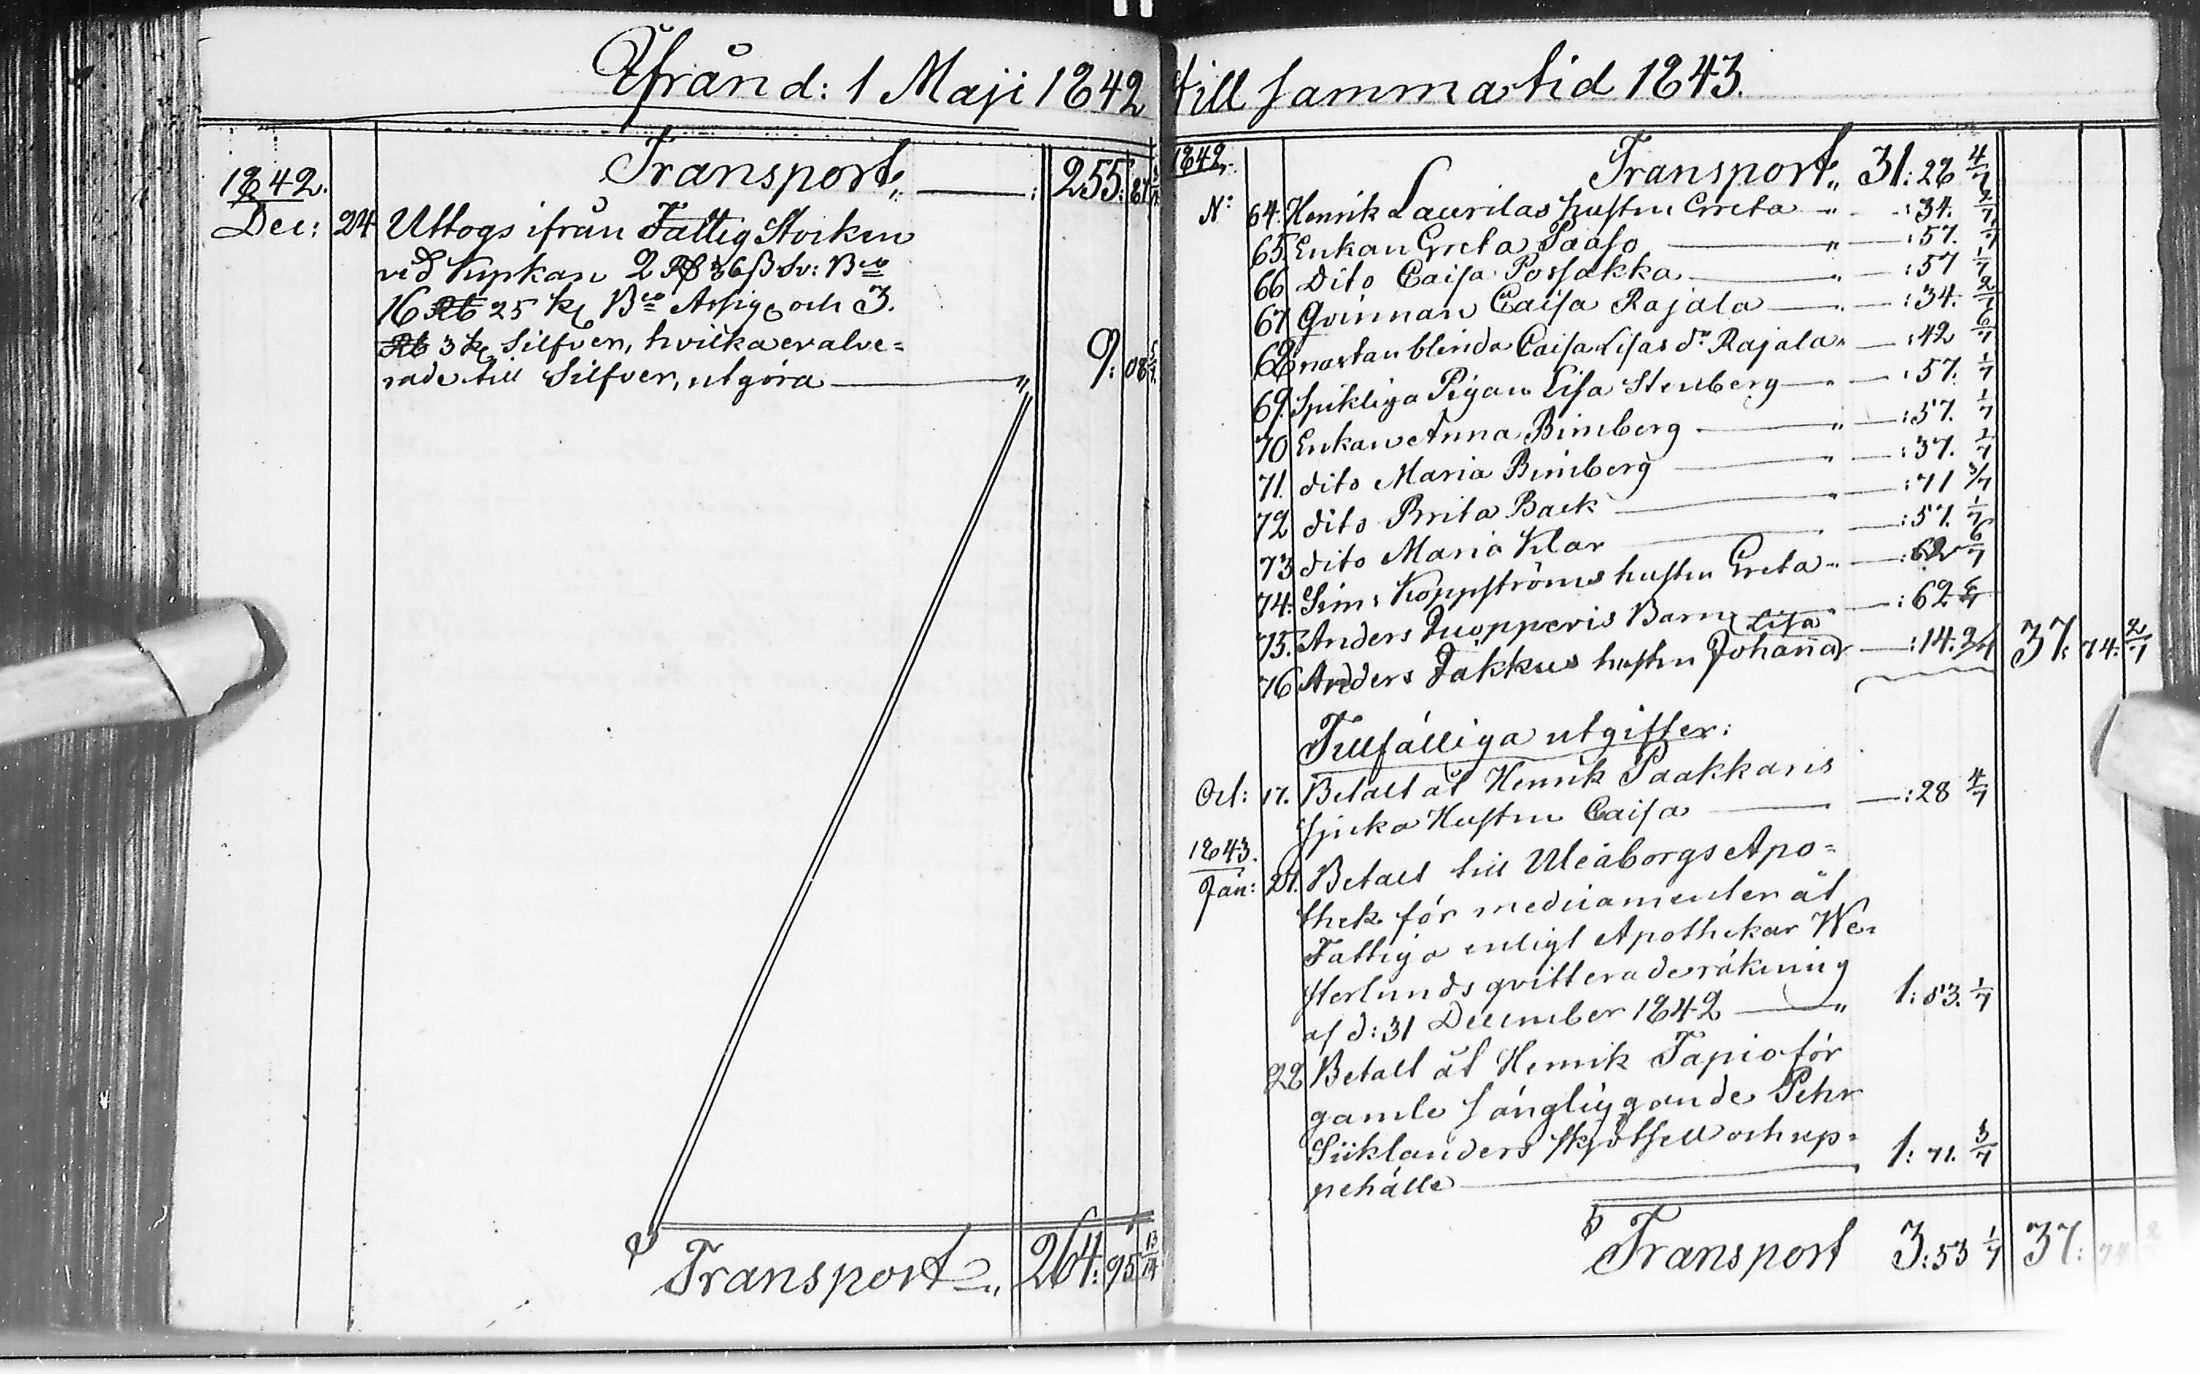 Ifrån d: 1 Maji 1842 till samma tid 1843.
1842. Transport „ — : 255: 87
Dec: 24 Uttogs ifrån Fattig Stocken
vid Kyrkan 2 Rd 36 ß Sv: Bco
16 Rb 25 k Bco Assig och 3.
Rb 3 k Silfver, hvilka evalve=
rade till Silfver, utgöra — „ 9: 08
Transport „ 264: 95 13/14
1842. Transport „ 31: 28 4/7
No 64. Henrik Laurilas hustru Greta „ — : 34. 2/7
65. Enkan Greta Paaso — „ — : 57. 1/7
66 Dito Caisa Possakka — „ — : 57 1/7
67 Qvinnan Caisa Rajala — „ — : 34. 2/7
68 nästan blinda Caisa Lisas dr Rajala „ — : 42 6/7
69. Spikliga Pigan Lisa Stenberg — „ — : 57. 1/7
70 Enkan Anna Bimberg — „ — : 57. 1/7
71. dito Maria Bimberg — „ — : 37. 1/7
72 dito Brita Back — „ — : 71 3/7
73 dito Maria Klar — — : 57. 1/7
74. Sim: Koppströms hustru Greta „ — : 62 6/7
75. Anders Juopperis Barn Lisa — : 62 6/7
76 Anders Jakkus hustru Johanna — : 14. 2/7 37: 74: 2/7
Tillfälliga utgifter:
Oct: 17. Betalt åt Henrik Paakkaris
sjuka Hustru Caisa — — : 28 4/7
1843.
Jan: 21. Betalt till Uleåborgs Apo=
thek för medicamenter åt
Fattiga enligt Apothekar We=
sterlunds qvitterade räkning
af d: 31 December 1842 — „ 1: 53. 1/7
22 Betalt åt Henrik Tapio för
gamle sängliggande Pehr
Siiklanders skjötsell och up=
pehälle — 1: 71. 3/7
Transport 3: 53 1/7 37: 74